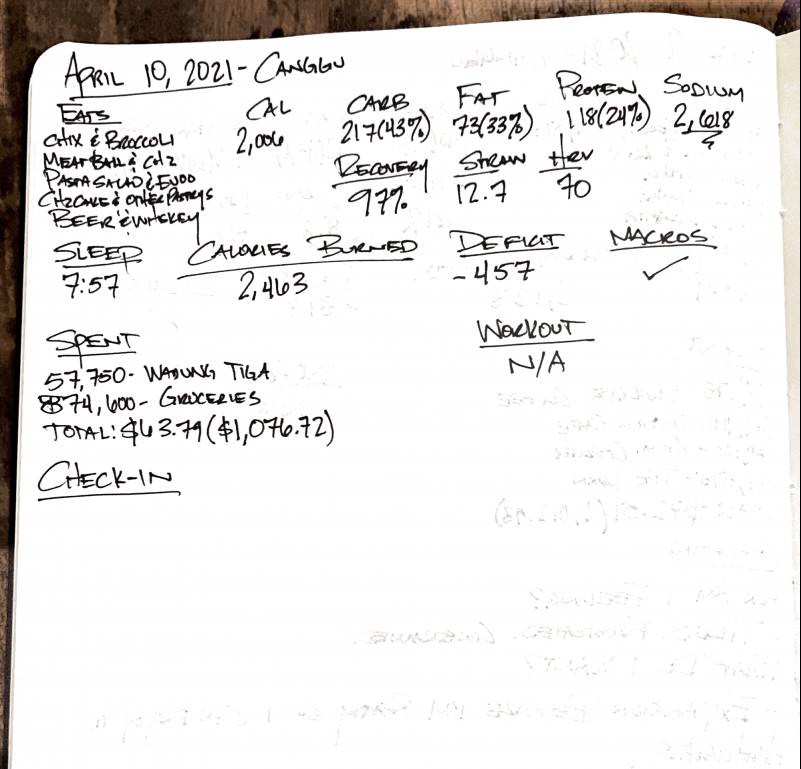 APRIL 10, 2021 - CANGGU
EATS CAL CARB FAT PROTEIN SODIUM
CHIX & BROCCOLI 2,006 217(43%) 73(33%) 118(24%) 2,618
MEATBALL & CHZ RECOVERY STRAIN HRV
PASTA SALAD & EVOO 97% 12.7 70
CHZCAKE & OTHER PASTRYS
BEER & WHISKEY
SLEEP CALORIES BURNED DEFICIT MACROS
7:57 2,463 -457 ✓
SPENT WORKOUT
57,750- WARUNG TIGA N/A
874,600- GROCERIES
TOTAL: $63.79($1,076.72)
CHECK-IN